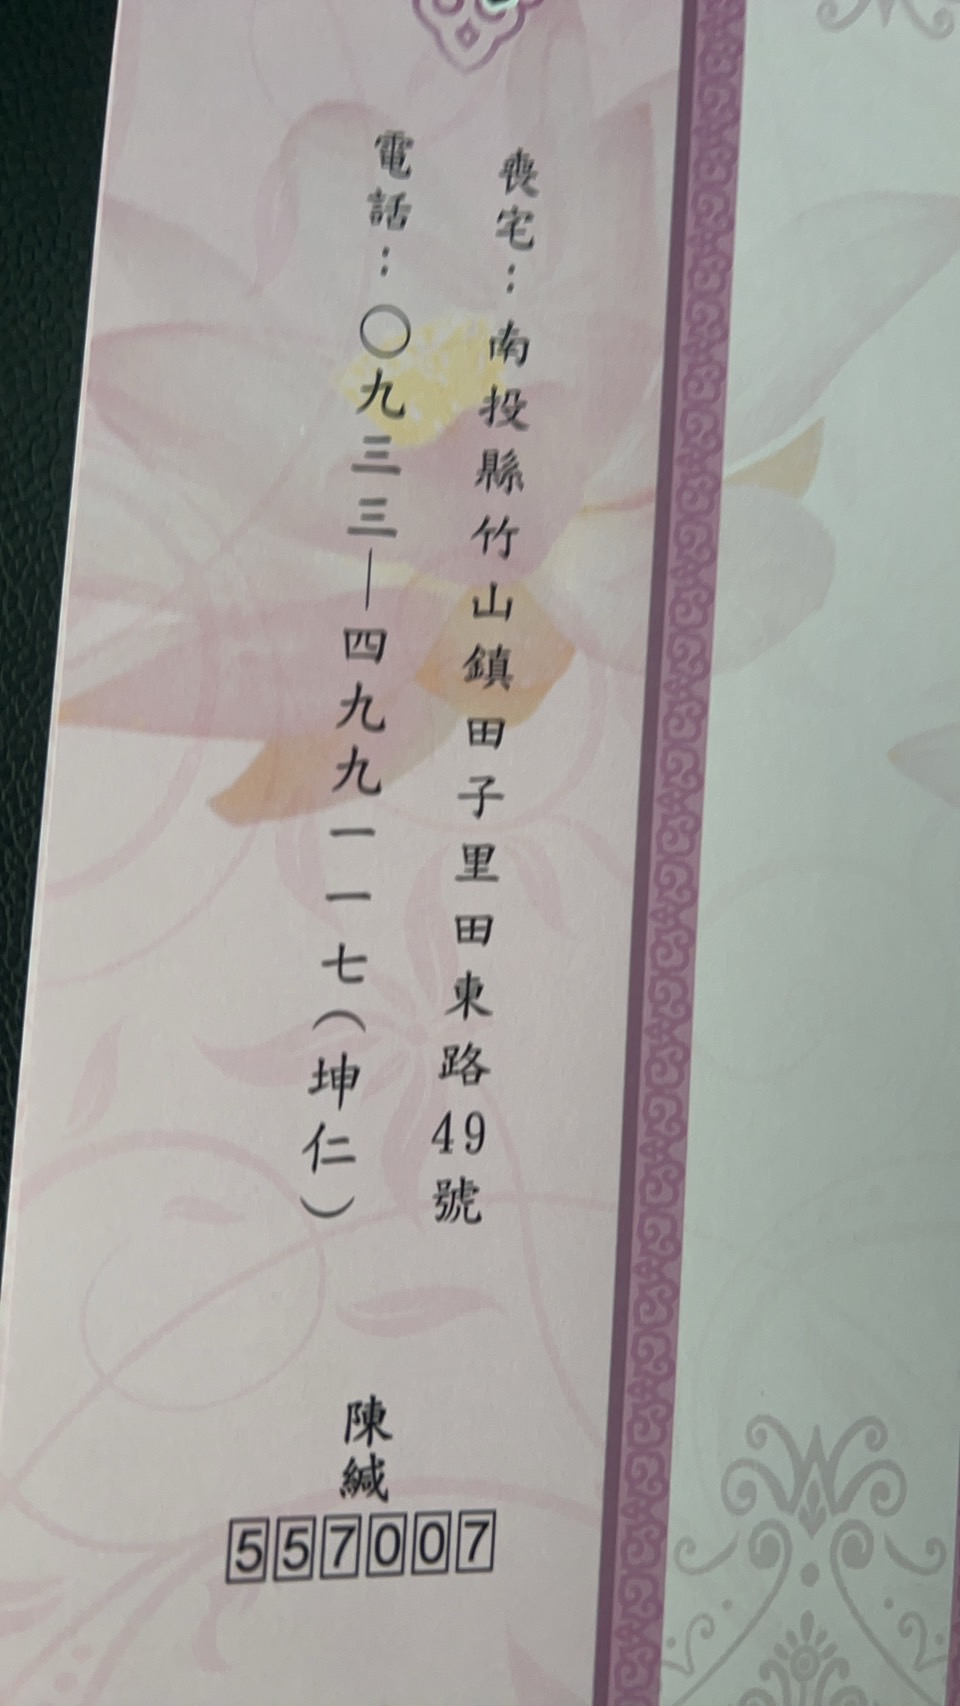 喪宅：南投縣竹山鎮田子里田東路49號
電話：〇九三三—四九九一一七（坤仁）
陳緘
557007